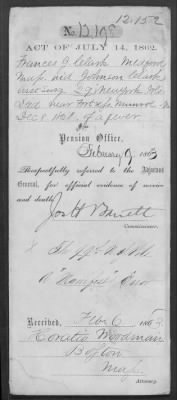 12.152
No. 12.192
ACT OF JULY 14, 1862.
Frances J. Clark Medford
Mass. wid Johnson Clark
Surg 2d New York Vols
Died near Fortress Monroe
Dec 8 1861. of a fever
Pension Office,
February 9, 1863
Respectfully referred to the Adjutant
General, for official evidence of service
and death.
Jos H Barrett
Commissioner.
Received, Feb 6 1863
Horatio Woodman
Boston
Mass.
Attorney.